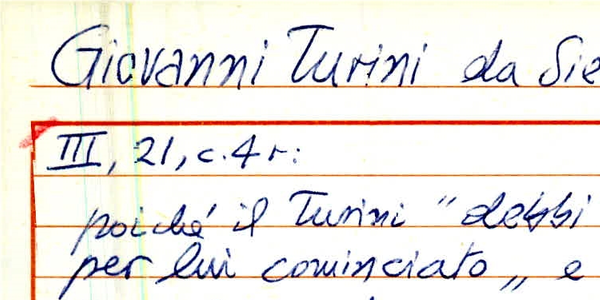 Giovanni Turini da Sie
III, 21, c. 4 r:
poiché il Turini "debbi
per lui cominciato„ e